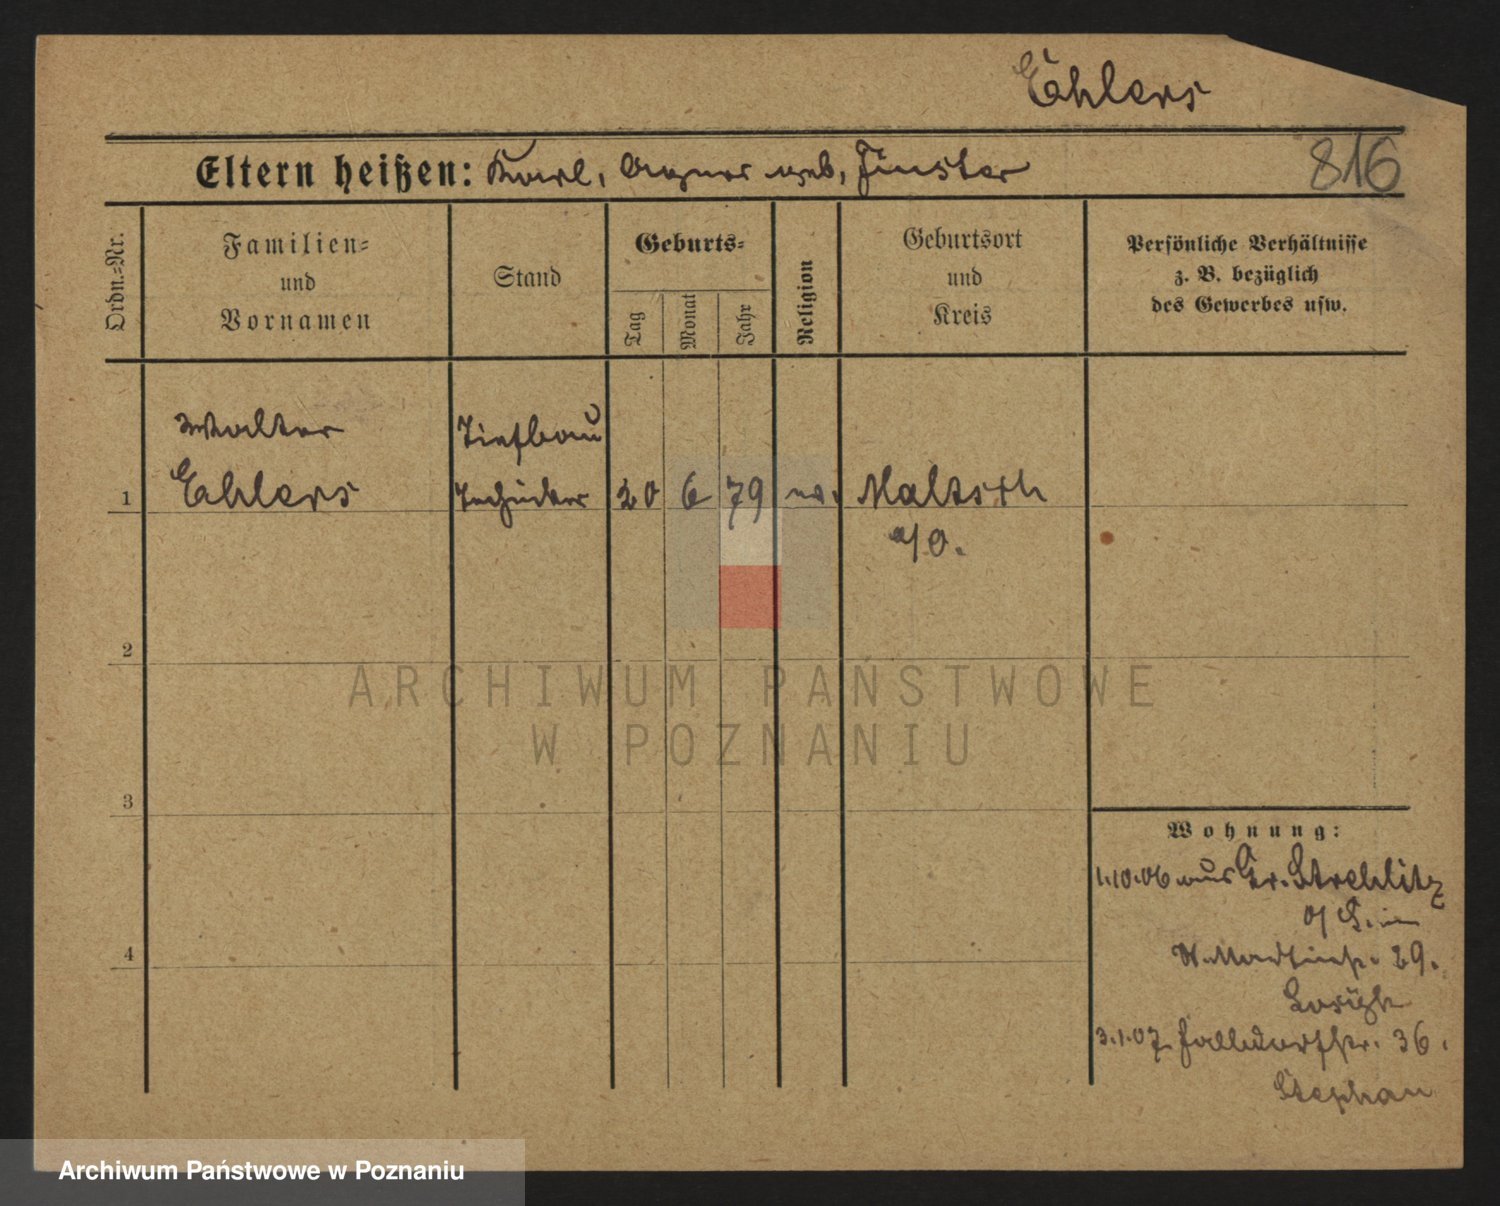 Ehlers
Eltern heißen: Karl, Agnes geb, Finster
816
Ordn.-Nr.
Familien-
und
Vornamen
Stand
Geburts-
Tag
Monat
Jahr
Religion
Geburtsort
und
Kreis
Persönliche Verhältnisse
z. B. bezüglich
des Gewerbes usw.
Walter
Tiefbau
1 Ehlers Techniker 20 6 79 ev. Maltsch
a/O.
2
ARCHIWUM PAŃSTWOWE
W POZNANIU
3
Wohnung:
1.10.06 aus Gr. Strehlitz
o/S. in
St. Martinstr. 29.
4
3.1.07 Halldorfstr. 36.
Stephan
Archiwum Państwowe w Poznaniu